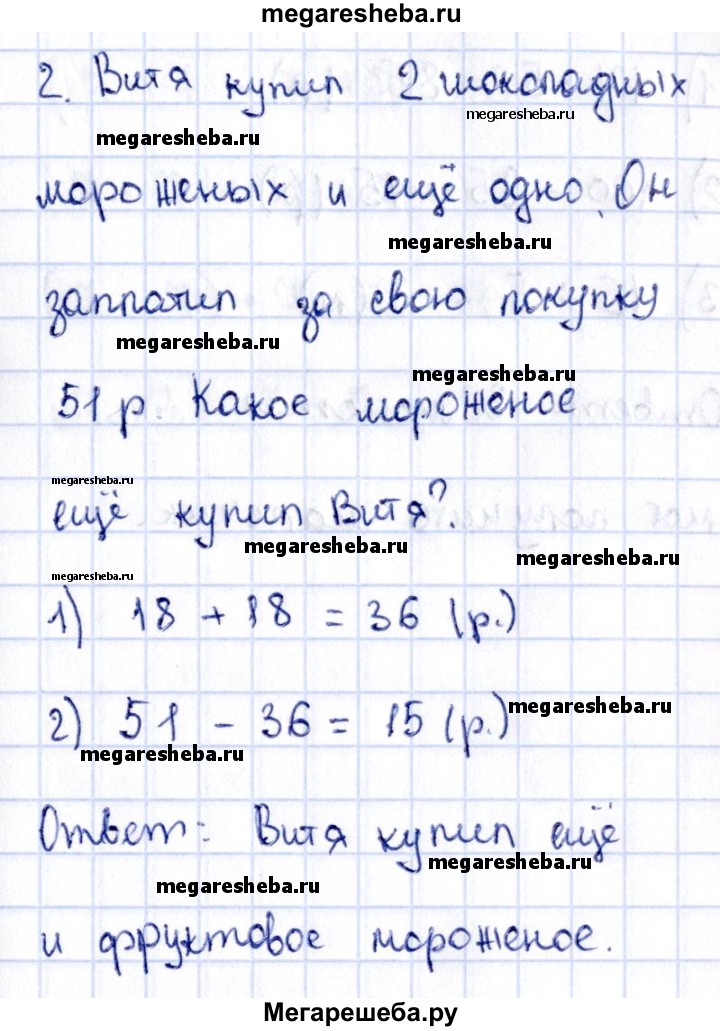 megaresheba.ru
2. Витя купил 2 шоколадных
megaresheba.ru
megaresheba.ru
мороженых и ещё одно. Он
megaresheba.ru
заплатил за свою покупку
megaresheba.ru
megaresheba.ru
51 р. Какое мороженое
megaresheba.ru
ещё купил Витя?
megaresheba.ru
megaresheba.ru
megaresheba.ru
1) 18 + 18 = 36 (р.)
2) 51 - 36 = 15 (р.)
megaresheba.ru
megaresheba.ru
Ответ: Витя купил ещё
megaresheba.ru
megaresheba.ru
и фруктовое мороженое.
Мегарешеба.ру